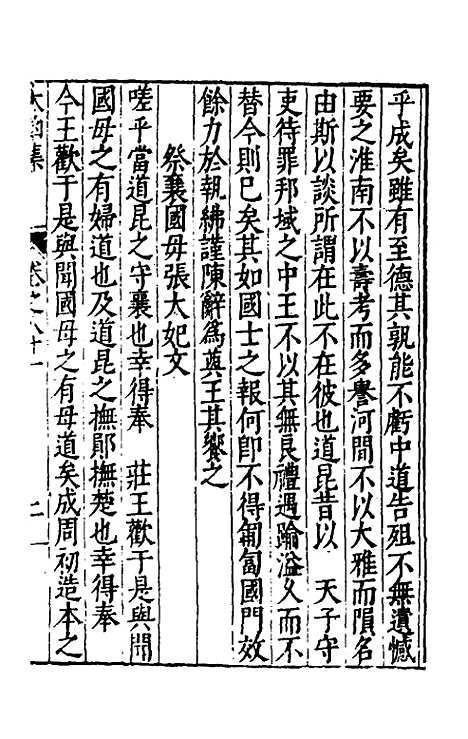 乎成矣雖有至德其孰能不虧中道告殂不無遺憾
要之淮南不以壽考而多譽河間不以大雅而隕名
由斯以談所謂在此不在彼也道昆昔以　天子守
吏待罪邦域之中王不以其無良禮遇踰溢久而不
替今則已矣其如國士之報何即不得匍匐國門效
餘力於執紼謹陳辭為奠王其饗之
祭襄國母張大妃文
嗟乎當道昆之守襄也幸得奉　莊王歡于是與聞
國母之有婦道也及道昆之撫鄖撫楚也幸得奉
今王歡于是與聞國母之有母道矣成周初造本之
太函集　卷之八十一　二